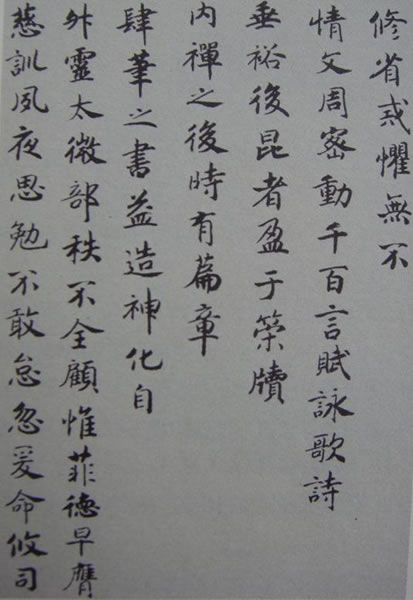 修省戒懼無不
情文周密動千百言賦詠歌詩
垂裕後昆者盈于策牘
內禪之後時有篇章
肆筆之書益造神化自
外靈太微部秩不全顧惟菲德早膺
慈訓夙夜思勉不敢怠忽爰命攸司